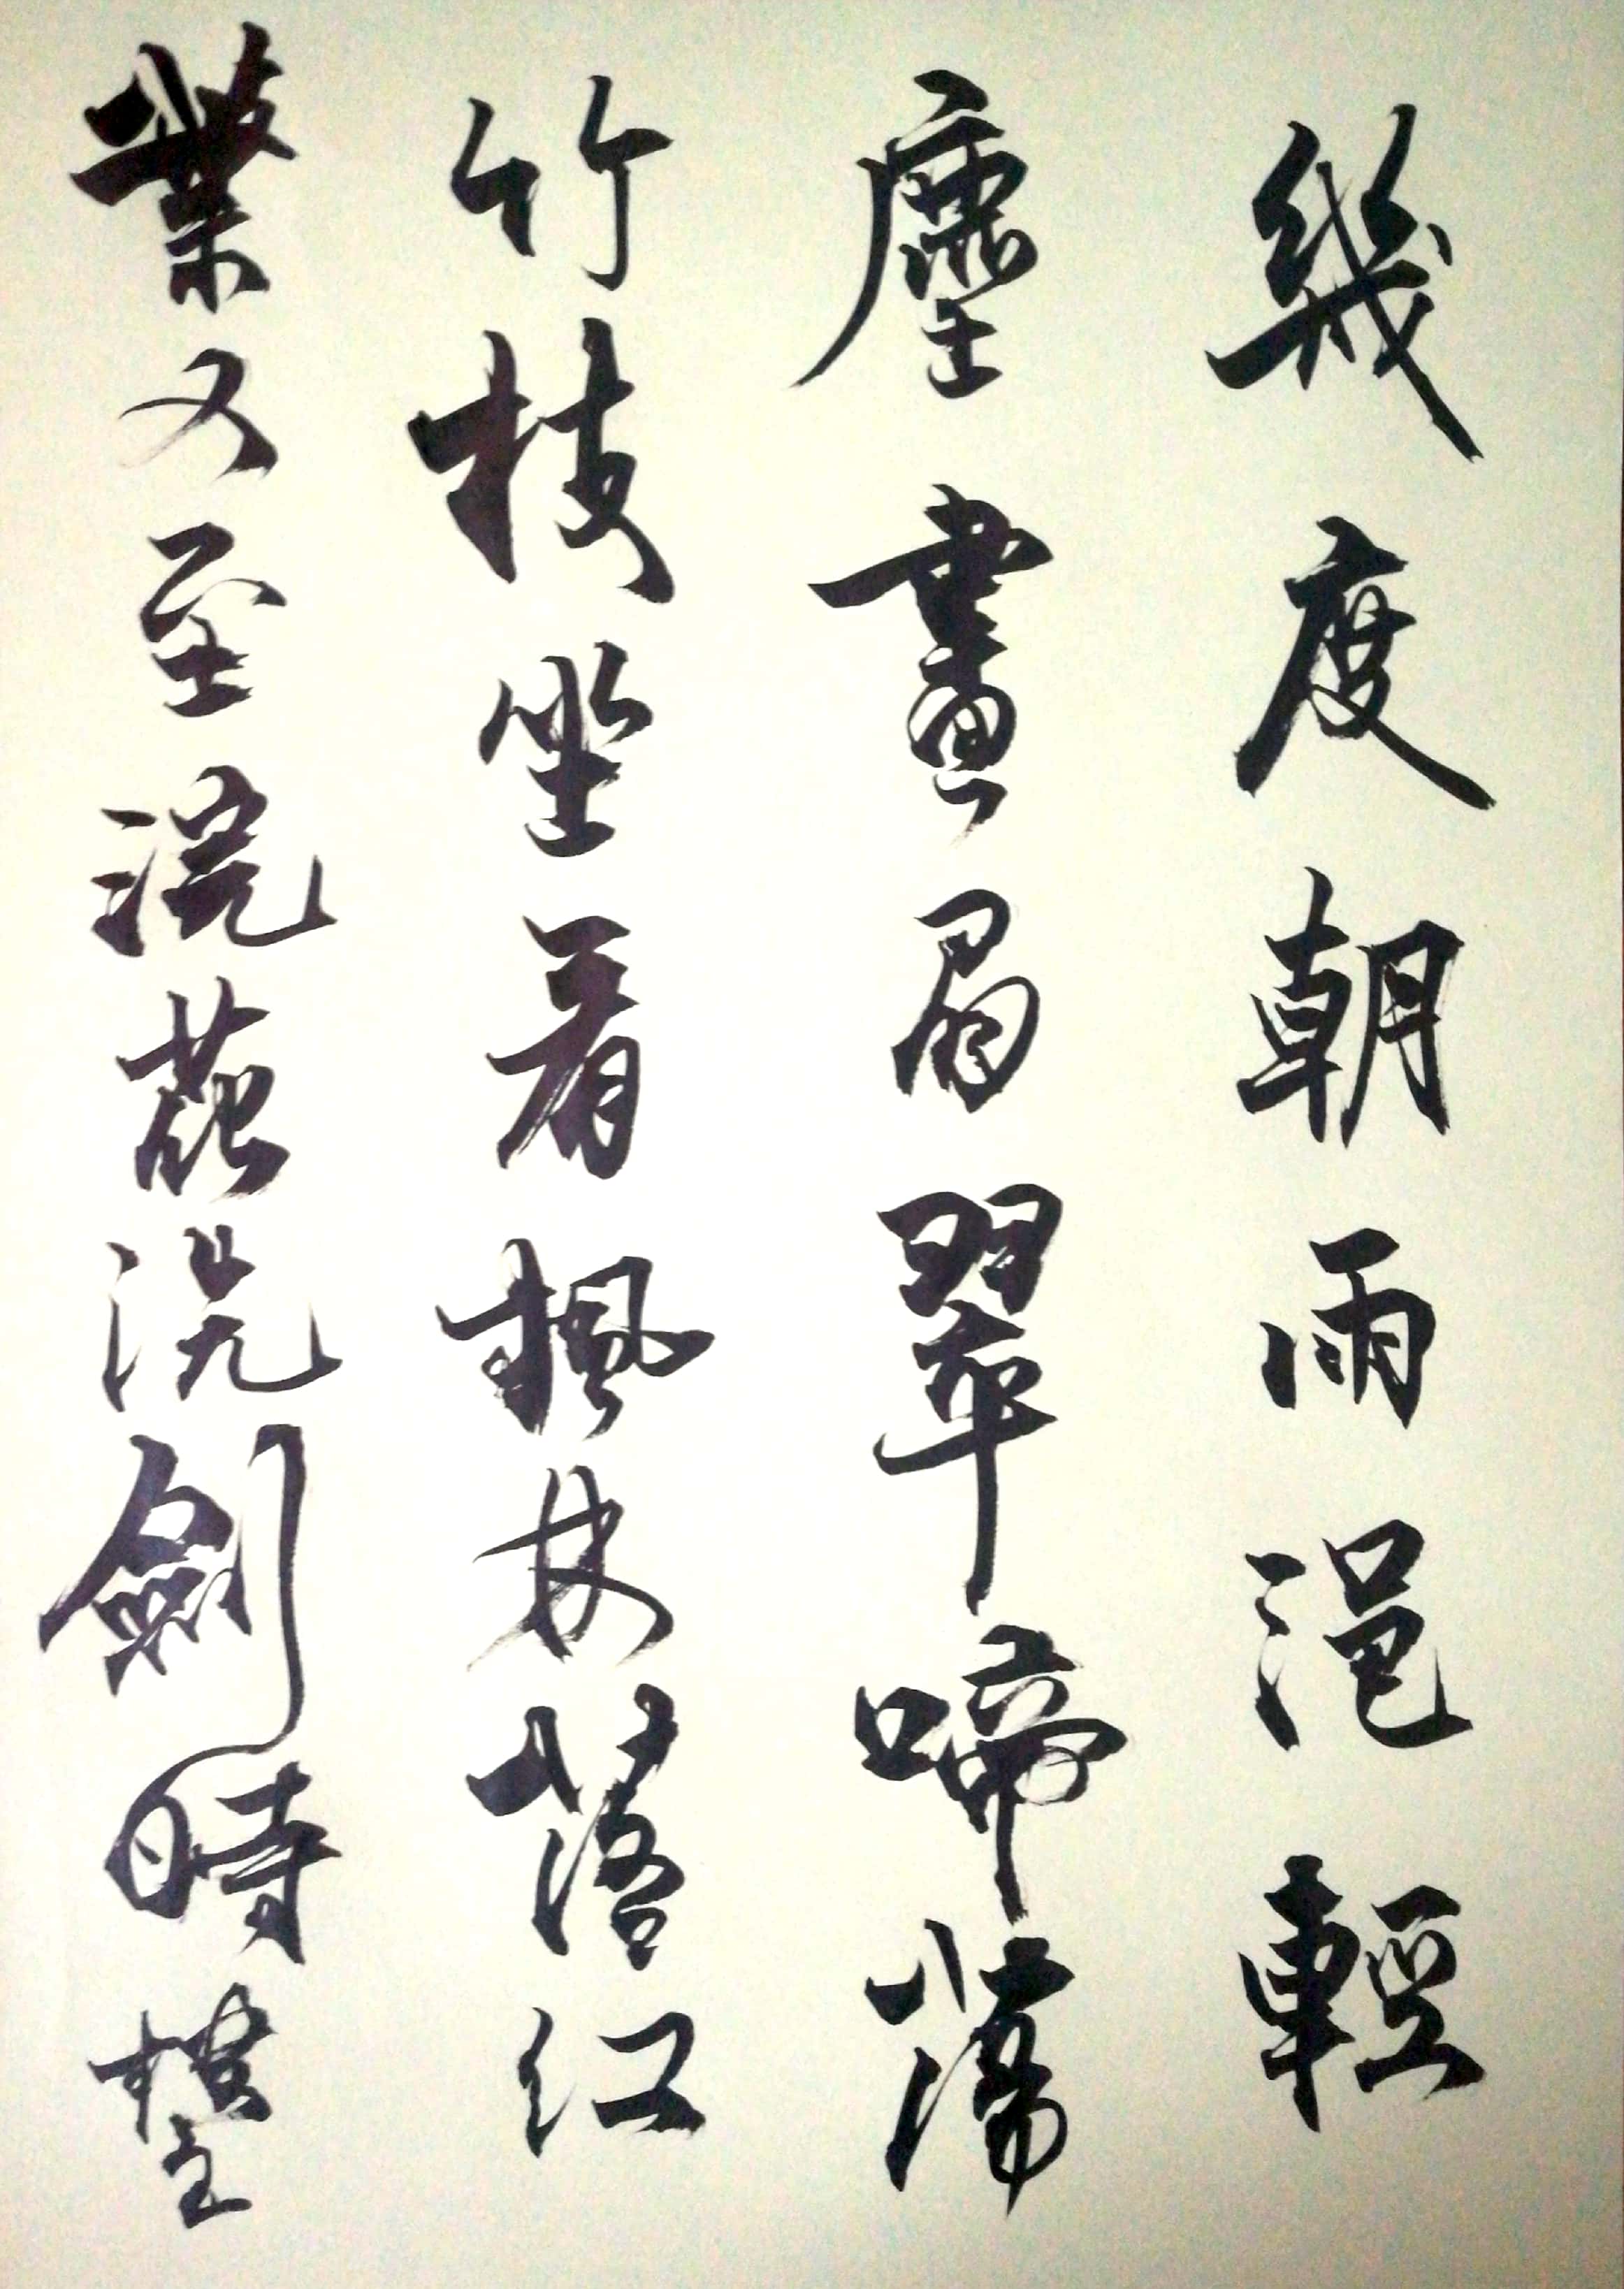 幾度朝雨浥輕
塵畫眉翠啼蕩
竹枝坐看楓林落紅
葉又至浣洗劍時